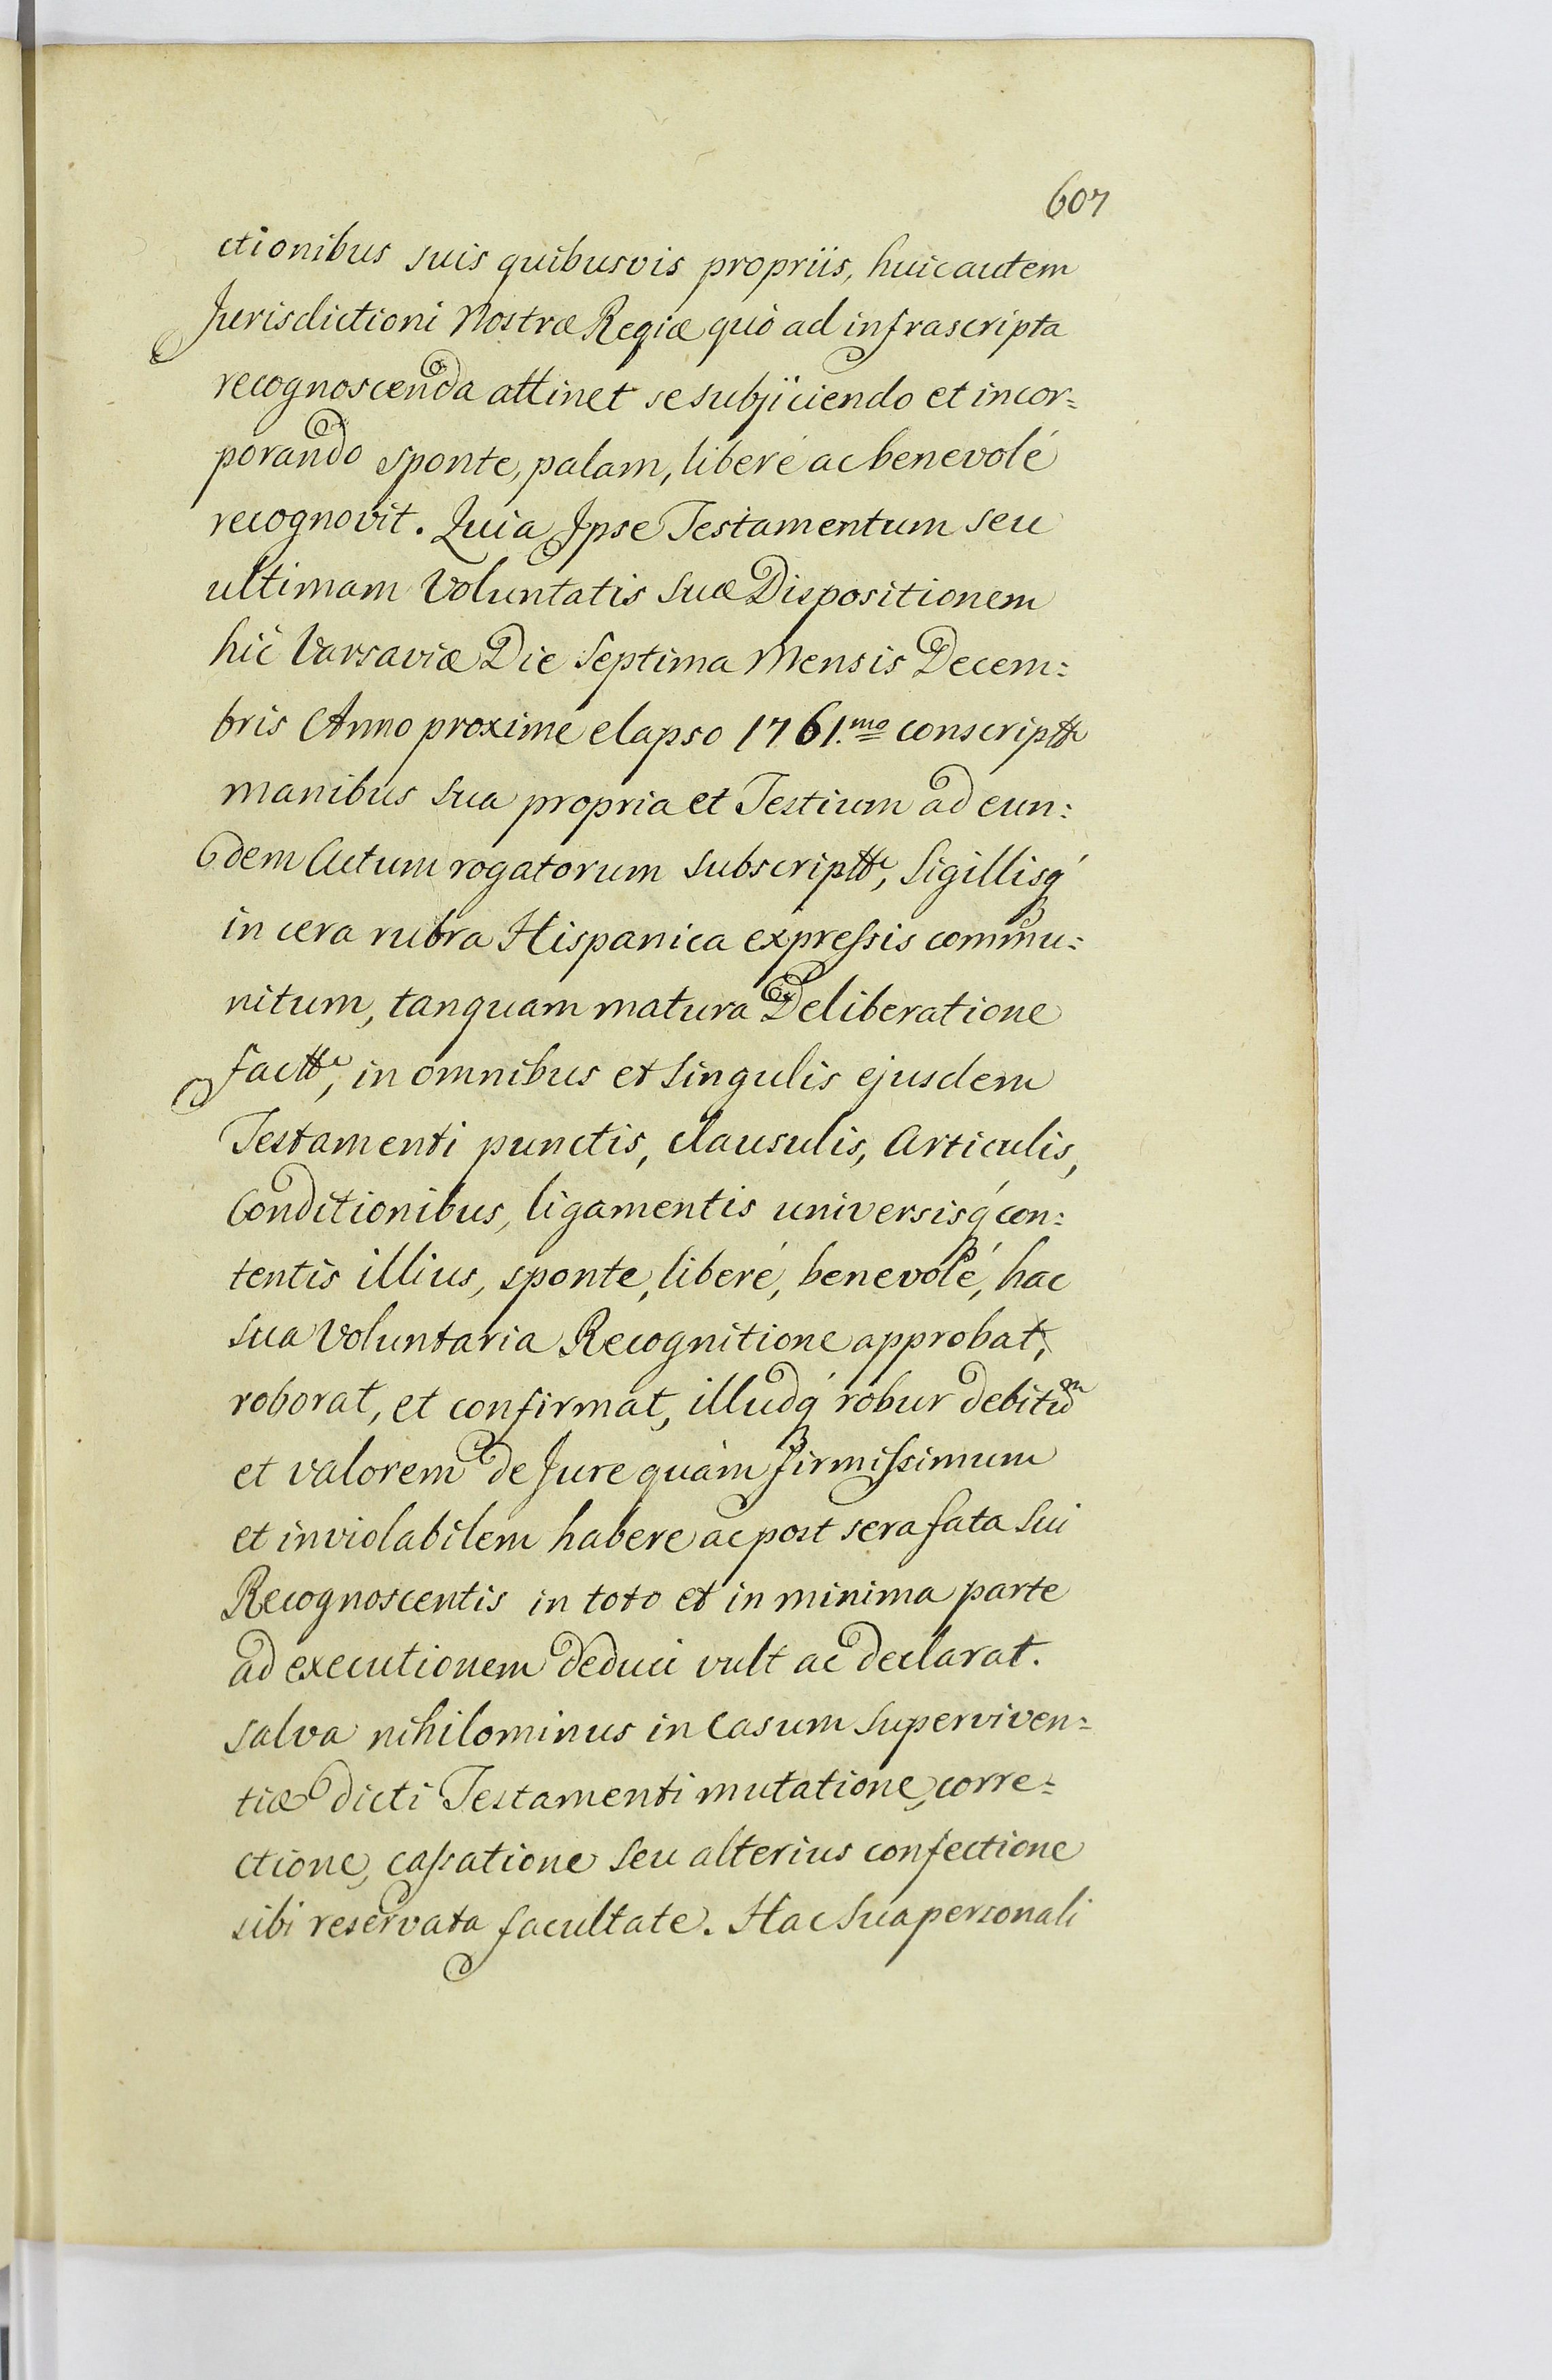 607
ctionibus suis quibusvis propriis, huic autem
Jurisdictioni Nostræ Regiæ quò ad infrascripta
recognoscenda attinet se subjiciendo et incor=
porando sponte, palam, liberé ac benevolé
recognovit. Quia Ipse Testamentum seu
ultimam Voluntatis suæ Dispositionem
hic Varsaviæ Die Septima Mensis Decem:
bris Anno proximé elapso 1761.mo conscriptt
manibus sua propria et Testium ad eun:
dem Actum rogatorum subscriptt, Sigillisq́
in cera rubra Hispanica expreſsis commu:
nitum, tanquam matura Deliberatione
factt, in omnibus et Singulis ejusdem
Testamenti punctis, clausulis, Articulis,
Conditionibus, ligamentis universisq́ con:
tentis illius, sponte, liberé, benevolé, hac
sua Voluntaria Recognitione approbat,
roborat, et confirmat, illudq́ robur debitum
et valorem de Jure quàm firmiſsimum
et inviolabilem habere ac post sera fata Sui
Recognoscentis in toto et in minima parte
ad executionem deduci vult ac declarat.
Salva nihilominus in Casum Superviven=
tiæ dicti Testamenti mutatione, corre=
ctione, caſsatione seu alterius confectione
sibi reservata facultate. Hac Sua personali